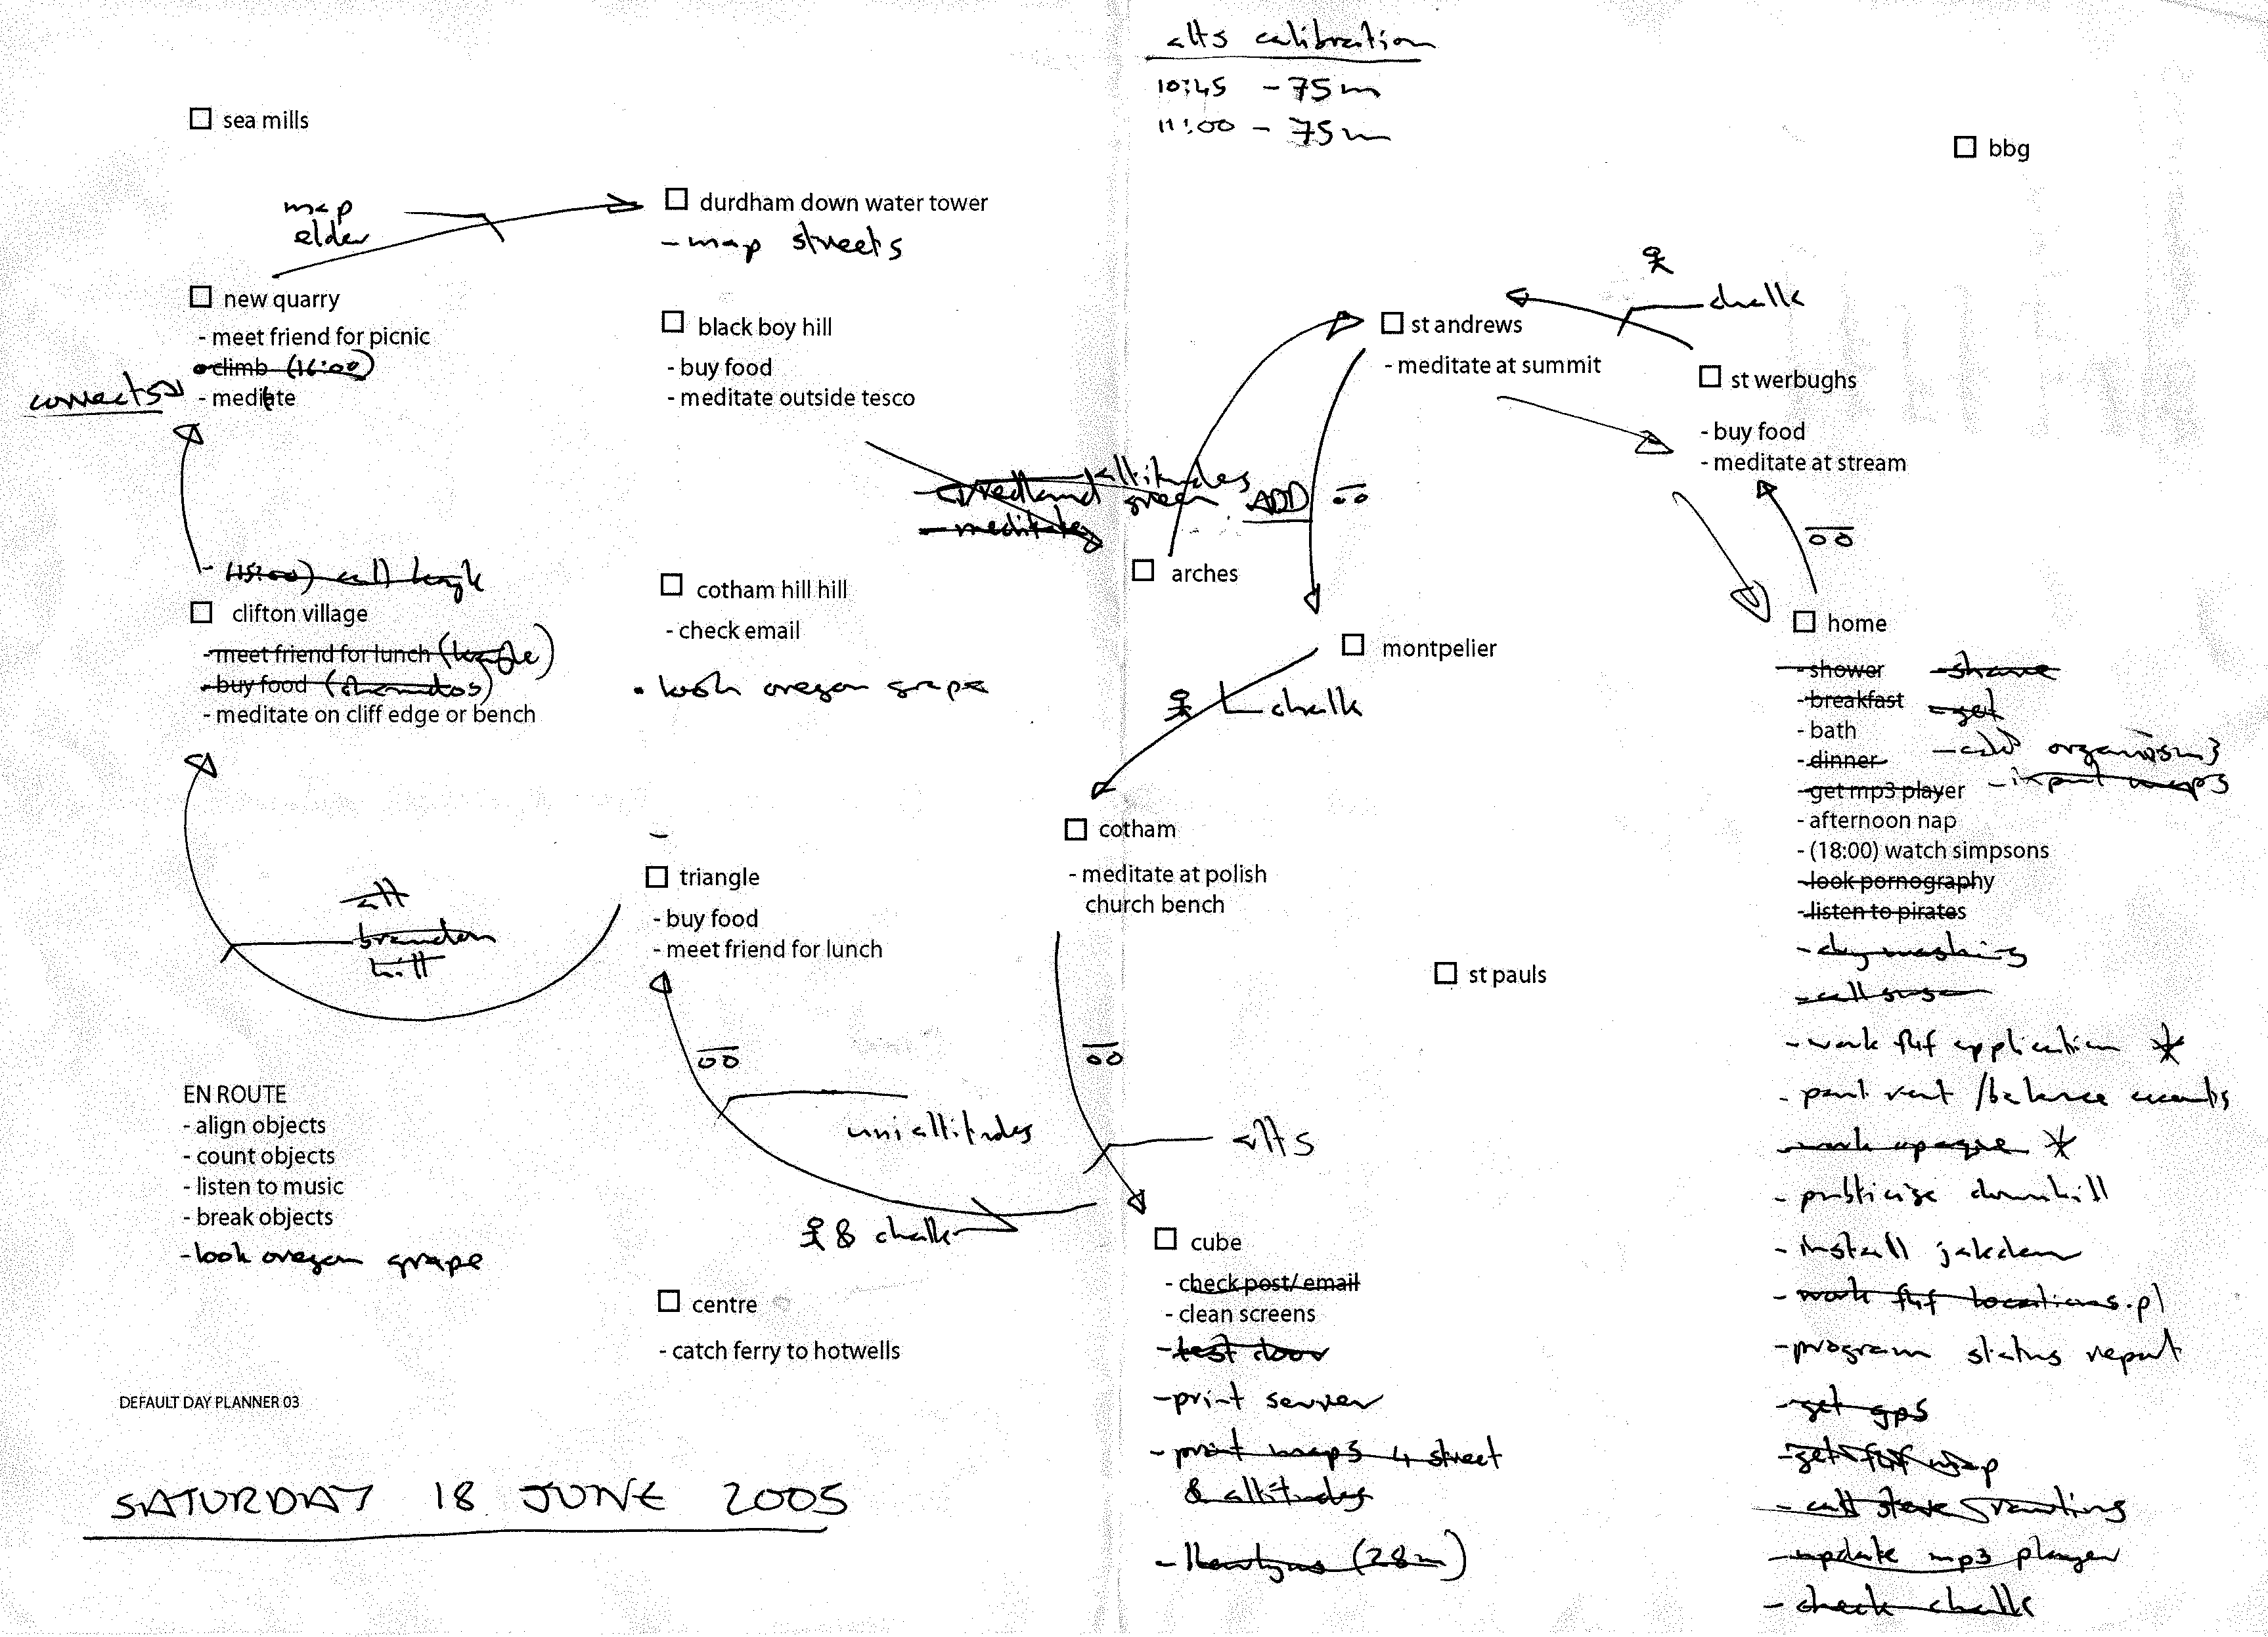 alts calibration
10:45 - 75m
11:00 - 75m
sea mills
bbg
map
elder
durdham down water tower
- map streets
new quarry
- meet friend for picnic
climb (16:00)
- meditate
connects
black boy hill
- buy food
- meditate outside tesco
st andrews
- meditate at summit
chalk
st werbughs
- buy food
- meditate at stream
altitudes
- redland green ADD
- meditate
arches
montpelier
chalk
- (15:00) call
clifton village
- meet friend for lunch
- buy food
- meditate on cliff edge or bench
cotham hill hill
- check email
• look oregon grape
home
- shower - shave
- breakfast - get
- bath
- dinner - add organism3
- get mp3 player - input maps
- afternoon nap
- (18:00) watch simpsons
- look pornography
- listen to pirates
- dry washing
- call
- work fhf application *
- rent / balance
- work opaque *
- publicise downhill
- install
- work fhf locations.pl
- program status report
- get gps
- get fhf map
- call steve
- update mp3 player
- check chalk
alt
brandon
hill
triangle
- buy food
- meet friend for lunch
cotham
- meditate at polish
church bench
st pauls
uni altitudes
alts
& chalk
EN ROUTE
- align objects
- count objects
- listen to music
- break objects
- look oregon grape
centre
- catch ferry to hotwells
cube
- check post/ email
- clean screens
- test door
- print server
- print maps 4 street
& altitudes
- (28m)
DEFAULT DAY PLANNER 03
SATURDAY 18 JUNE 2005